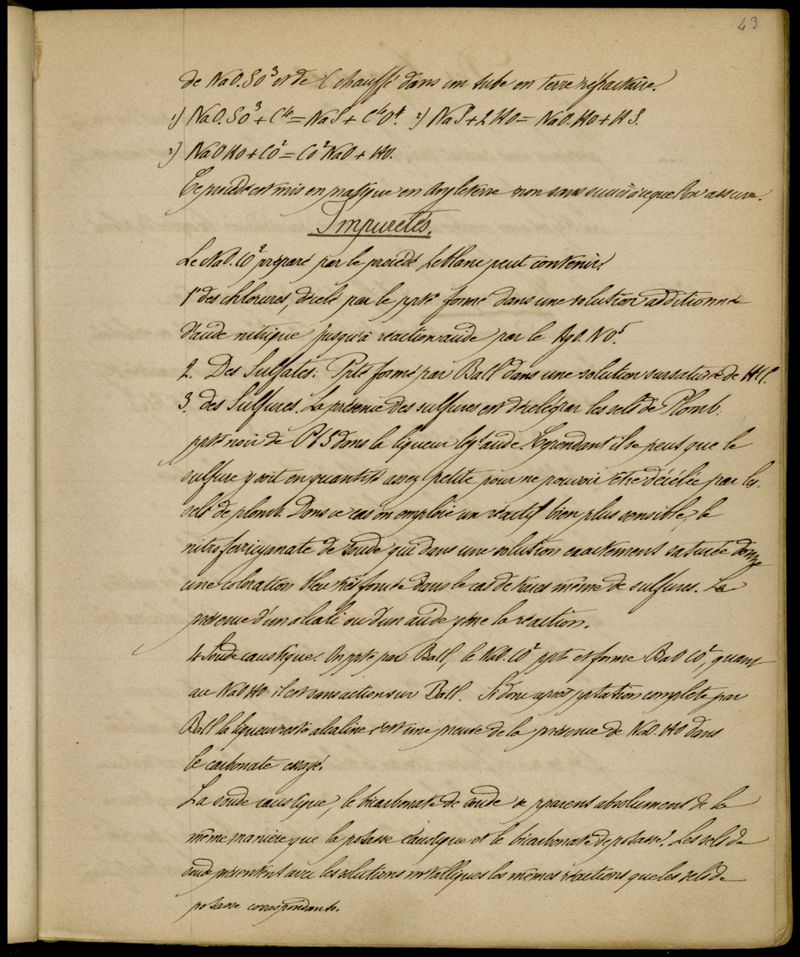 43
de NaO.SO³ et de C chauffé dans un tube en terre réfractaire.
1) NaO.SO³ + C⁴ = NaS + C⁴O⁴. 2) NaS + 2HO = NaO.HO + HS.
3) NaOHO + CO² = CO²NaO + HO.
Ce procédé est mis en pratique en Angleterre non sans succès à ce que l'on assure.
Impuretés.
Le NaO.CO² préparé par le procédé Leblanc peut contenir:
1° des chlorures, décelé par le ppté formé dans une solution additionnée
d'acide nitrique jusqu'à réaction acide par le AgO.NO⁵.
2. Des Sulfates. Ppté formé par BaCl dans une solution sursaturée de HCl.
3. des Sulfures. La présence des sulfures est décelée par les sels de Plomb.
ppté noir de PbS dans la liqueur acide. Cependant il se peut que le
sulfure y soit en quantité assez petite pour ne pouvoir être décélée par les
sels de plomb. Dans ce cas on emploie un réactif bien plus sensible, le
nitroferricyanate de soude qui dans une solution exactement saturée donne
une coloration bleu très foncée dans le cas de traces même de sulfures. La
présence d'un alcali ou d'un acide gêne la réaction.
4. Soude caustique. On ppte par BaCl, le NaO.CO² ppté et forme BaO CO², quant
au NaOHO il est sans action sur BaCl. Si donc après pptation complète par
BaCl la liqueur reste alcaline c'est une preuve de la présence de NaO.HO dans
le carbonate essayé.
La soude caustique, le bicarbonate de soude se pparent absolument de la
même manière que la potasse caustique et le bicarbonate de potasse. Les sels de
soude présentent avec les solutions métalliques les mêmes réactions que les sels de
potasse correspondants.